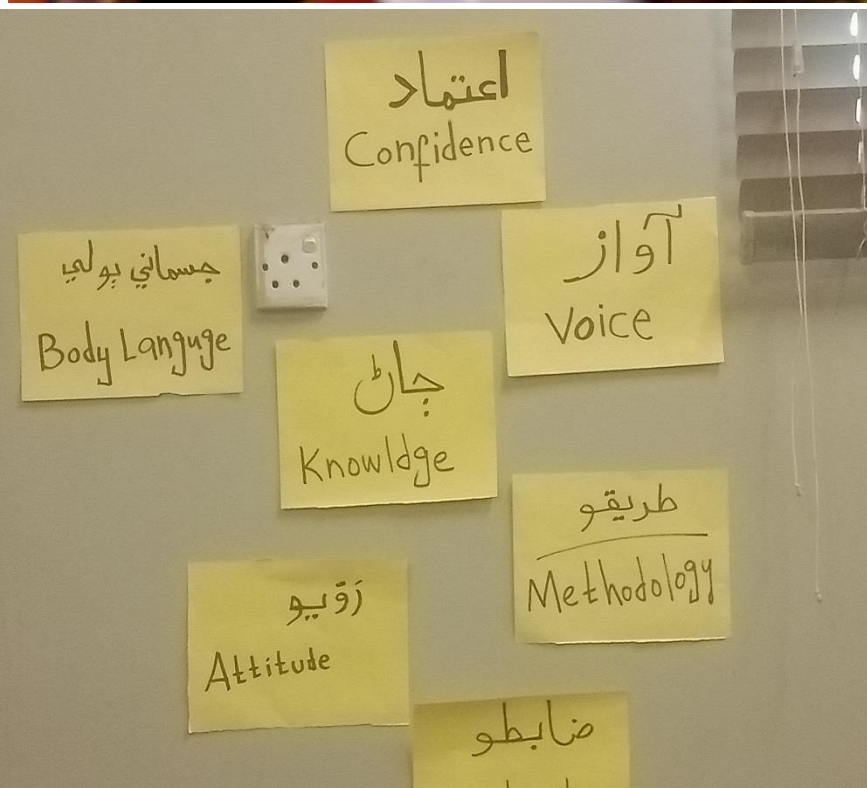 اعتماد
Confidence
آواز
Voice
جسماني ٻولي
Body Languge
ڄاڻ
Knowldge
طريقو
Methodology
رَوّيو
Attitude
ضابطو